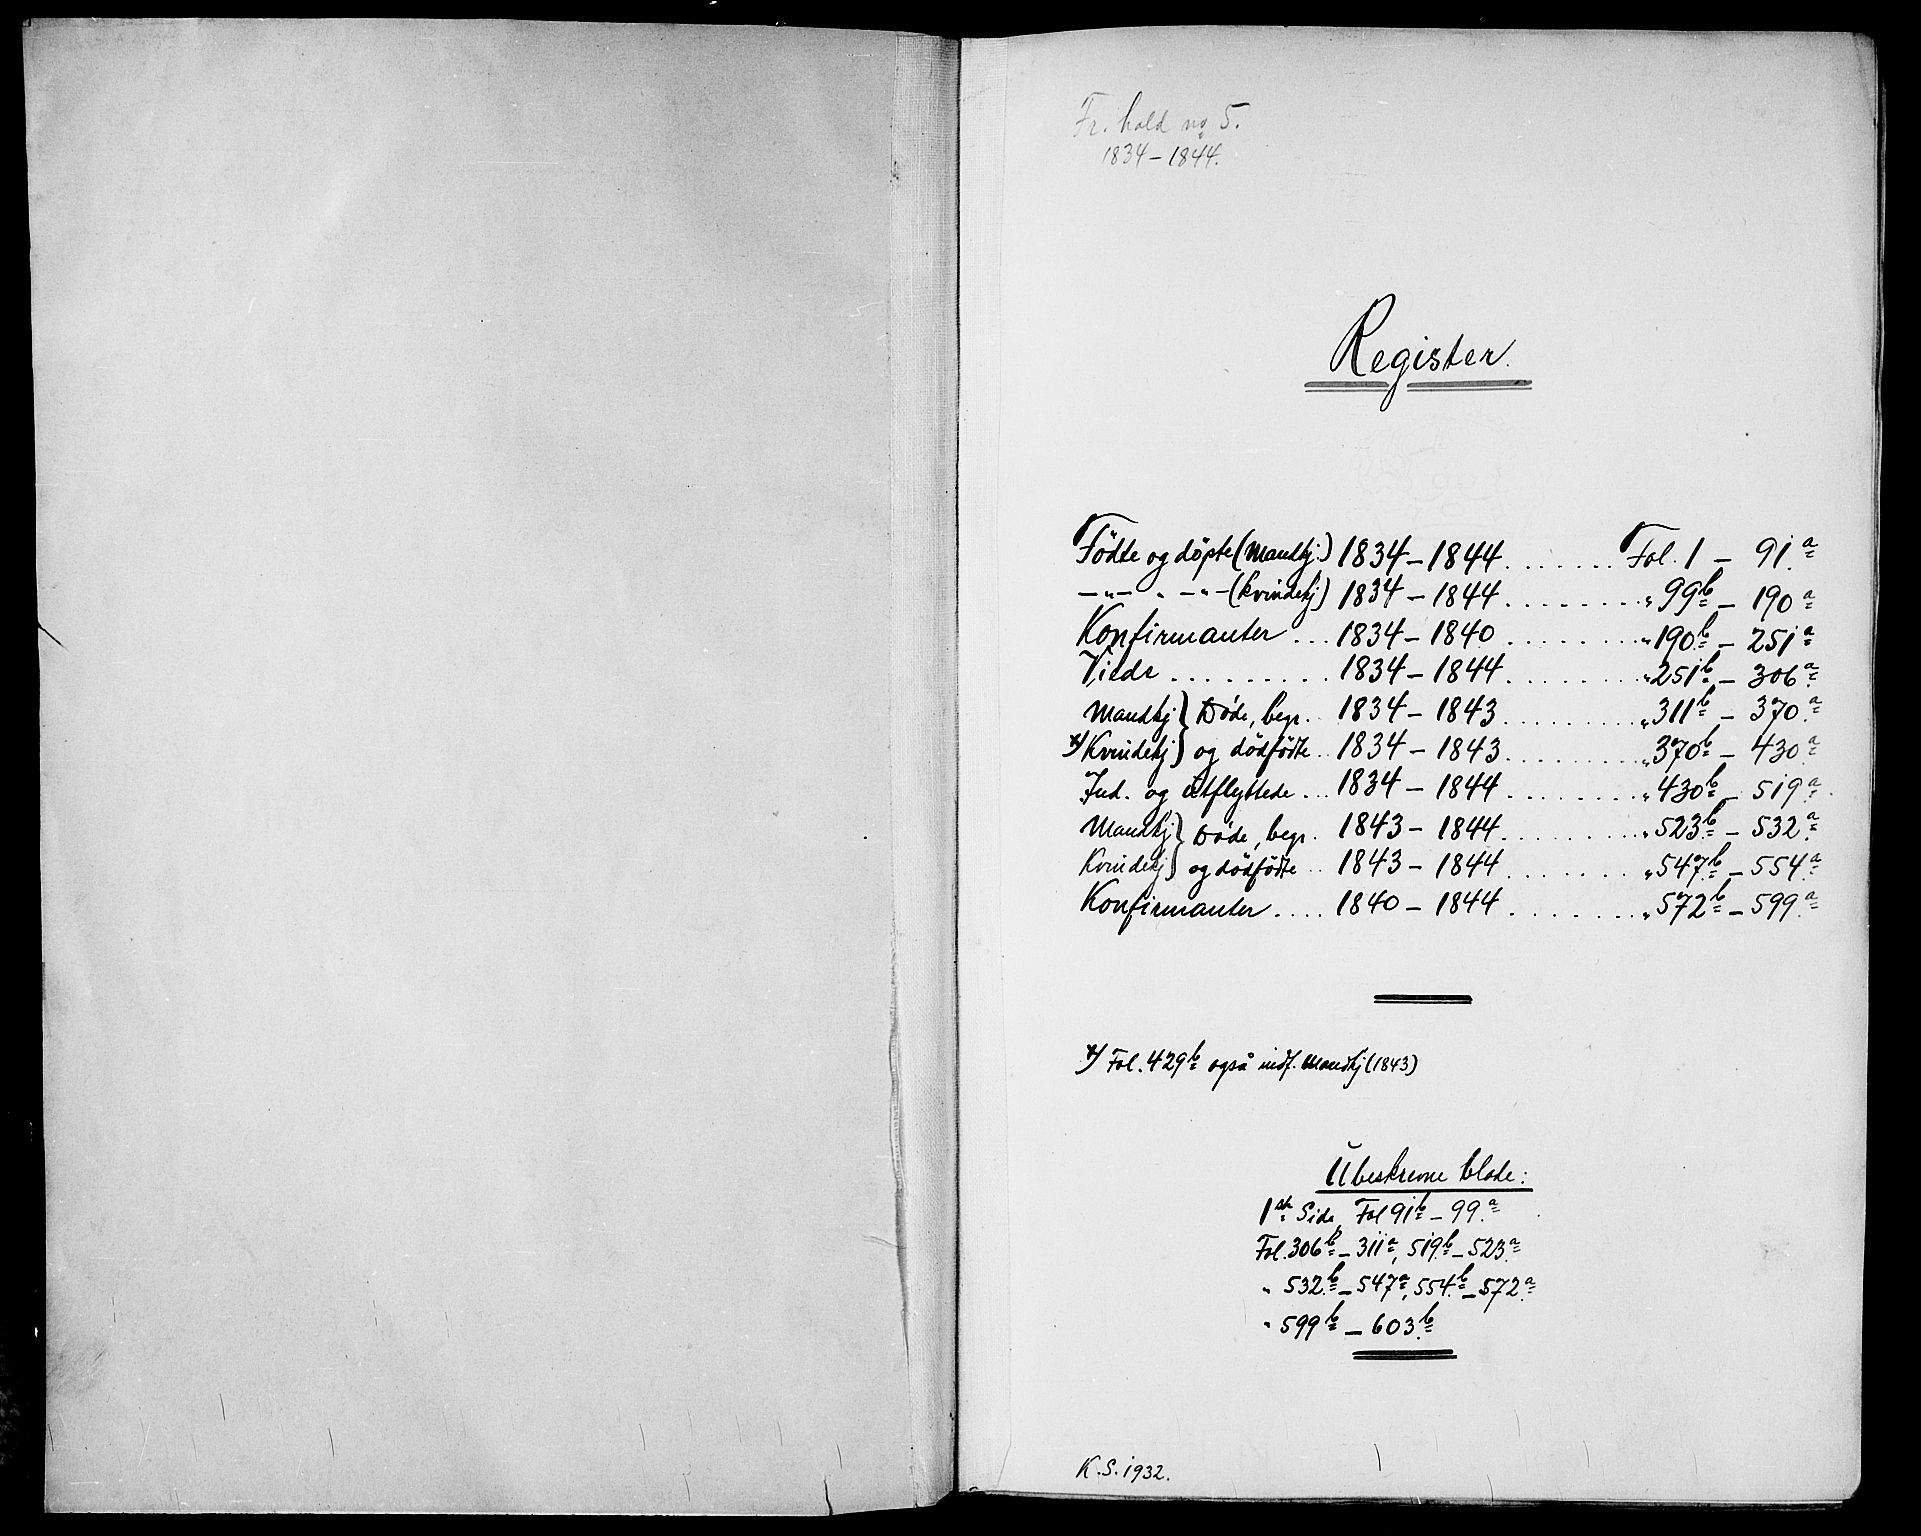 Fr.hald no 5.
1834 – 1844.
Register.
Fødte og døpte (Mandkj.) 1834 – 1844 ....... Fol. 1 – 91.a
– " – " – " – (kvindekj) 1834 – 1844 ........ " 99b – 190a
Konfirmanter ... 1834 – 1840 ........ " 190b – 251a
Viede ......... 1834 – 1844 ........ " 251b – 306a
Mandkj } Døde, begr. . 1834 – 1843 ........ " 311b – 370.a
x) Kvindekj } og dødfødte .. 1834 – 1843 ........ " 370b – 430a
Ind. og utflyttede ... 1834 – 1844 ........ " 430b – 519a
Mandkj } Døde, begr. 1843 – 1844 ........ " 523b – 532a
Kvindekj } og dødfødte .. 1843 – 1844 ........ " 547b – 554a
Konfirmanter .... 1840 – 1844 ........ " 572b – 599a
x) Fol. 429b også indf. Mandkj (1843)
Ubeskrevne blade:
1ste Side, Fol 91b – 99.a
Fol. 306b – 311a, 519b – 523a
" 532b – 547a, 554b – 572a
" 599b – 603b
K.S. 1932.